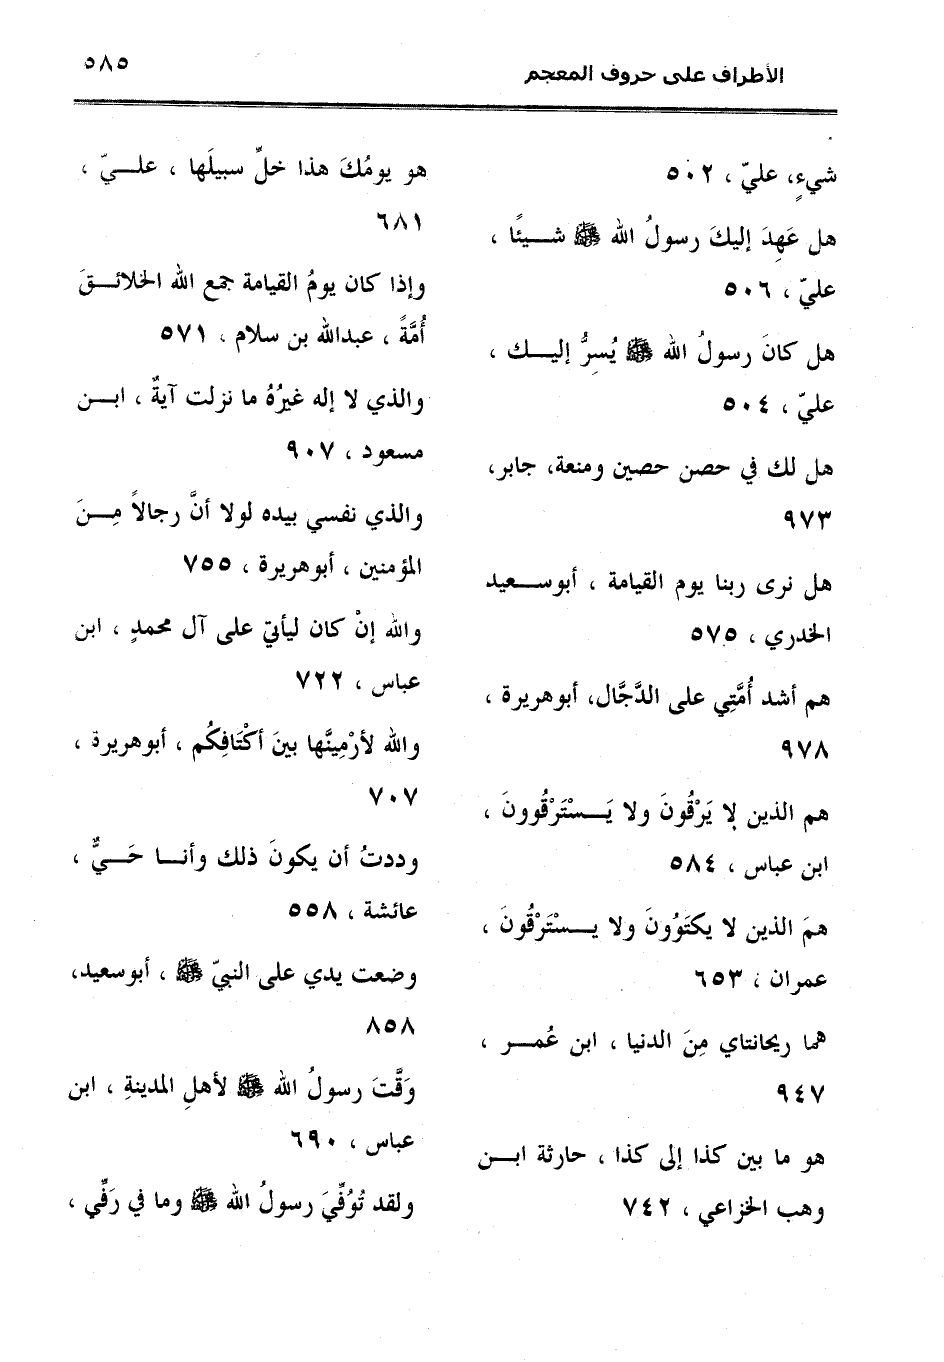 الأطراف على حروف المعجم
٥٨٥
شيءٍ، عليّ ، ٥٠٢
هل عَهِدَ إليكَ رسولُ الله ﷺ شـــيئًا ،
عليّ ، ٥٠٦
هل كانَ رسولُ الله ﷺ يُسِرُّ إليـــك ،
عليّ ، ٥٠٤
هل لك في حصن حصين ومنعة، جابر،
٩٧٣
هل نرى ربنا يوم القيامة ، أبوســـعيد
الخدري ، ٥٧٥
هم أشد أُمَّتِي على الدَّجَّال، أبوهريرة ،
٩٧٨
هم الذين لا يَرْقُونَ ولا يَـــسْتَرْقُوونَ ،
ابن عباس ، ٥٨٤
همَ الذين لا يكتَوُونَ ولا يـــسْتَرْقُونَ ،
عمران ، ٦٥٣
هما ريحانتاي مِنَ الدنيا ، ابن عُمـــر ،
٩٤٧
هو ما بين كذا إلى كذا ، حارثة ابـــن
وهب الخزاعي ، ٧٤٢
هو يومُكَ هذا خلِّ سبيلَها ، علـــيّ ،
٦٨١
وإذا كان يومُ القيامة جمع الله الخلائـــقَ
أُمَّةً ، عبدالله بن سلام ، ٥٧١
والذي لا إله غيرُهُ ما نزلت آيةٌ ، ابـــن
مسعود ، ٩٠٧
والذي نفسي بيده لولا أنَّ رجالاً مِـــنَ
المؤمنين ، أبوهريرة ، ٧٥٥
والله إنْ كان ليأتيَ على آل محمدٍ ، ابن
عباس ، ٧٢٢
والله لأرْمِينَّها بينَ أكْتَافِكُم ، أبوهريرة ،
٧٠٧
وددتُ أن يكونَ ذلك وأنـــا حَـــيٌّ ،
عائشة ، ٥٥٨
وضعت يدي على النبيّ ﷺ ، أبوسعيد،
٨٥٨
وَقَّتَ رسولُ الله ﷺ لأهلِ المدينةِ ، ابن
عباس ، ٦٩٠
ولقد تُوُفِّيَ رسولُ الله ﷺ وما في رَفِّي ،